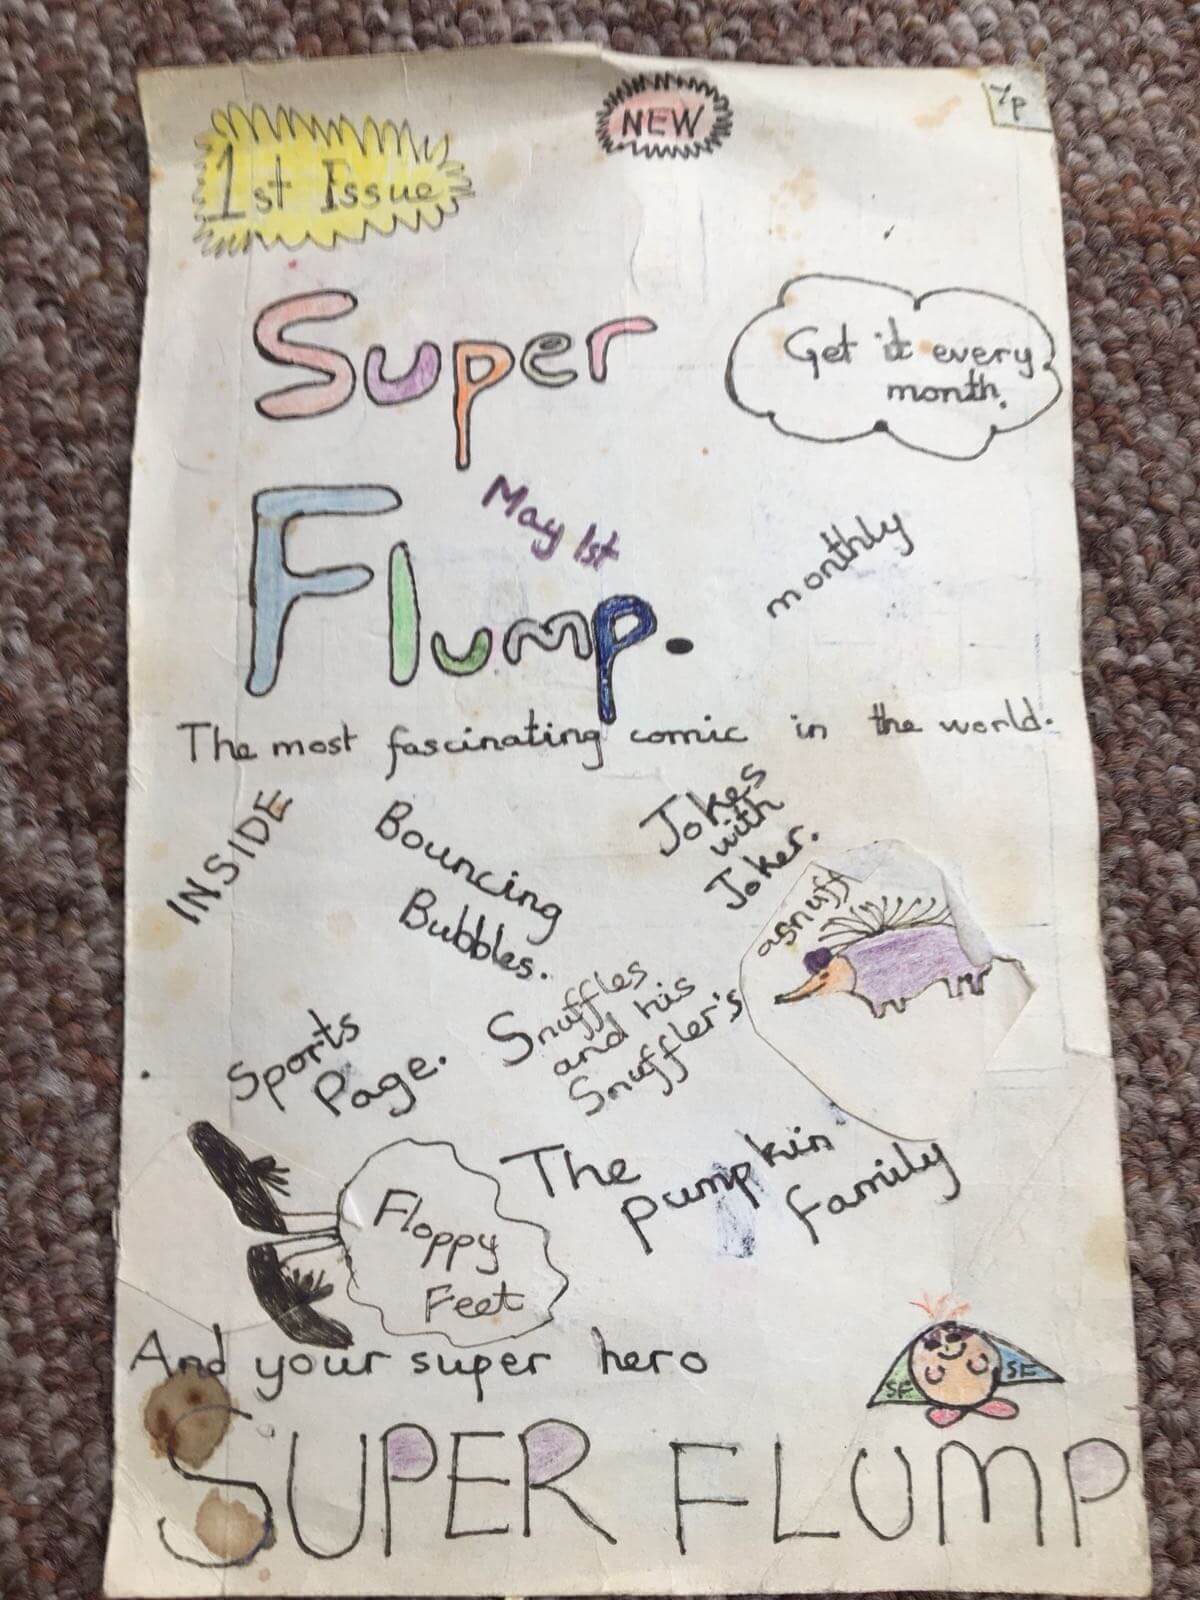 NEW
7p
1st Issue
Super
Get it every
month.
Flump.
May 1st
monthly
The most fascinating comic in the world.
INSIDE
Bouncing
Bubbles.
Jokes
with
Joker.
asnuff
Snuffles
and his
Snuffler's
Sports
Page.
The
pumpkin
family
Floppy
Feet
And your super hero
SF
SF
SUPER FLUMP